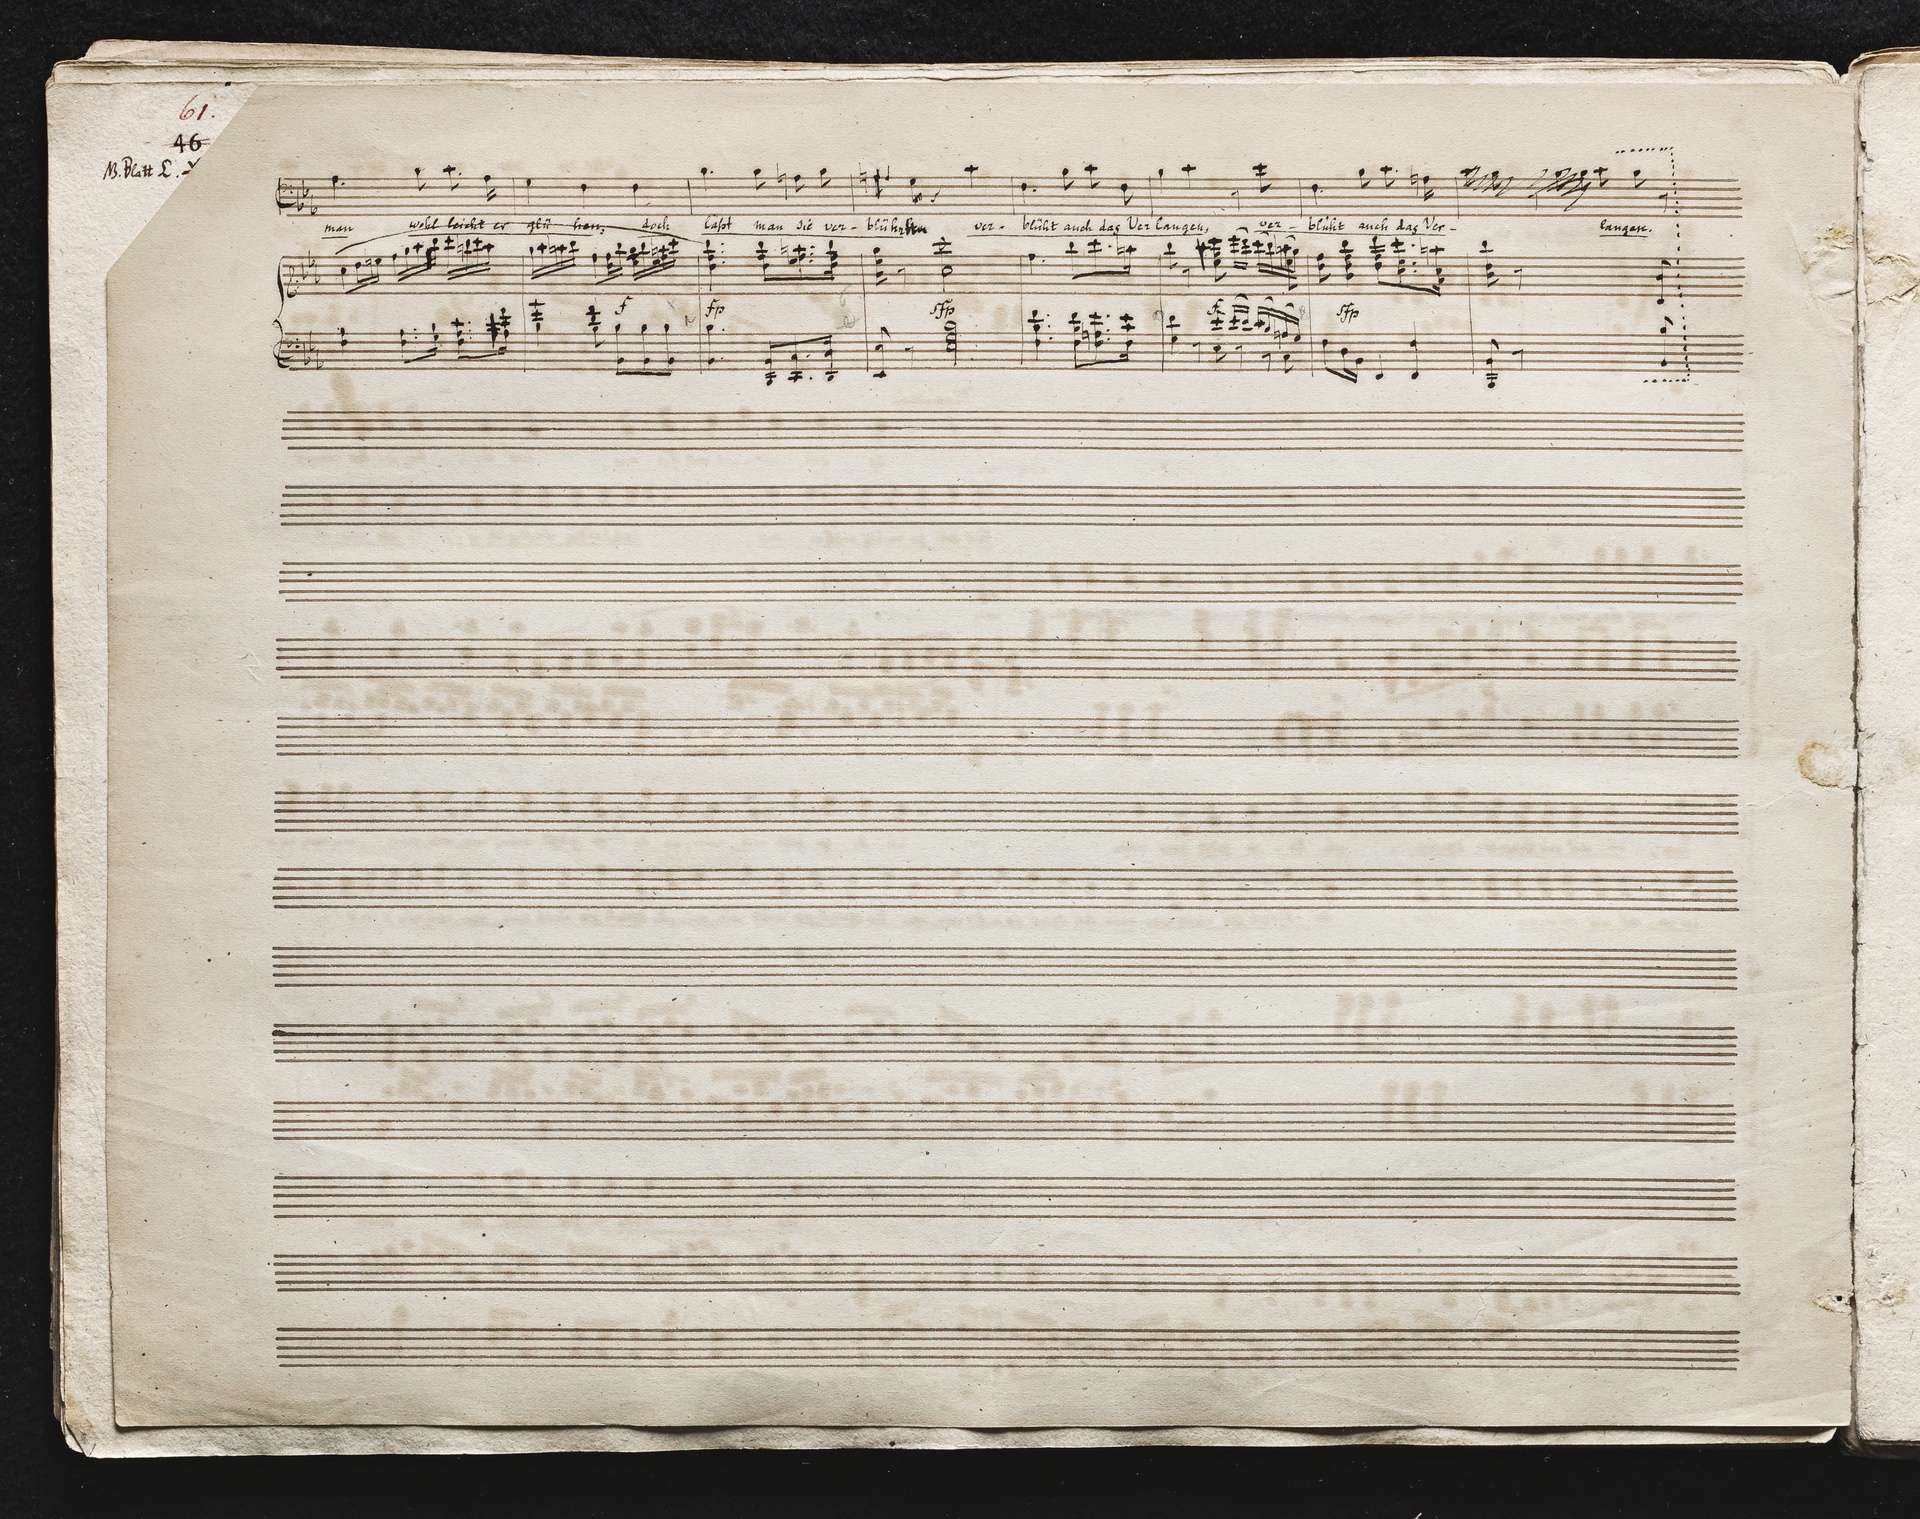 61.
46
NB. Blatt
man wohl leicht er glü hen, doch läßt man sie ver- blüh ver- blüht auch das Ver langen, ver- blüht auch das Ver- langen.
f fp sfp f sfp